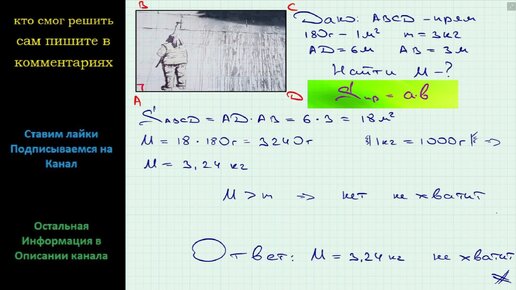 кто смог решить
сам пишите в
комментариях
Ставим лайки
Подписываемся на
Канал
Остальная
Информация в
Описании канала
B
C
A
D
Дано: ABCD - прям
180г - 1м² m = 3кг
AD = 6м AB = 3м
Найти M - ?
Sпр = a·b
SABCD = AD·AB = 6·3 = 18м²
M = 18·180г = 3240г ||1кг = 1000г|| =>
M = 3,24 кг
M > m => нет не хватит
Ответ: M = 3,24 кг не хватит